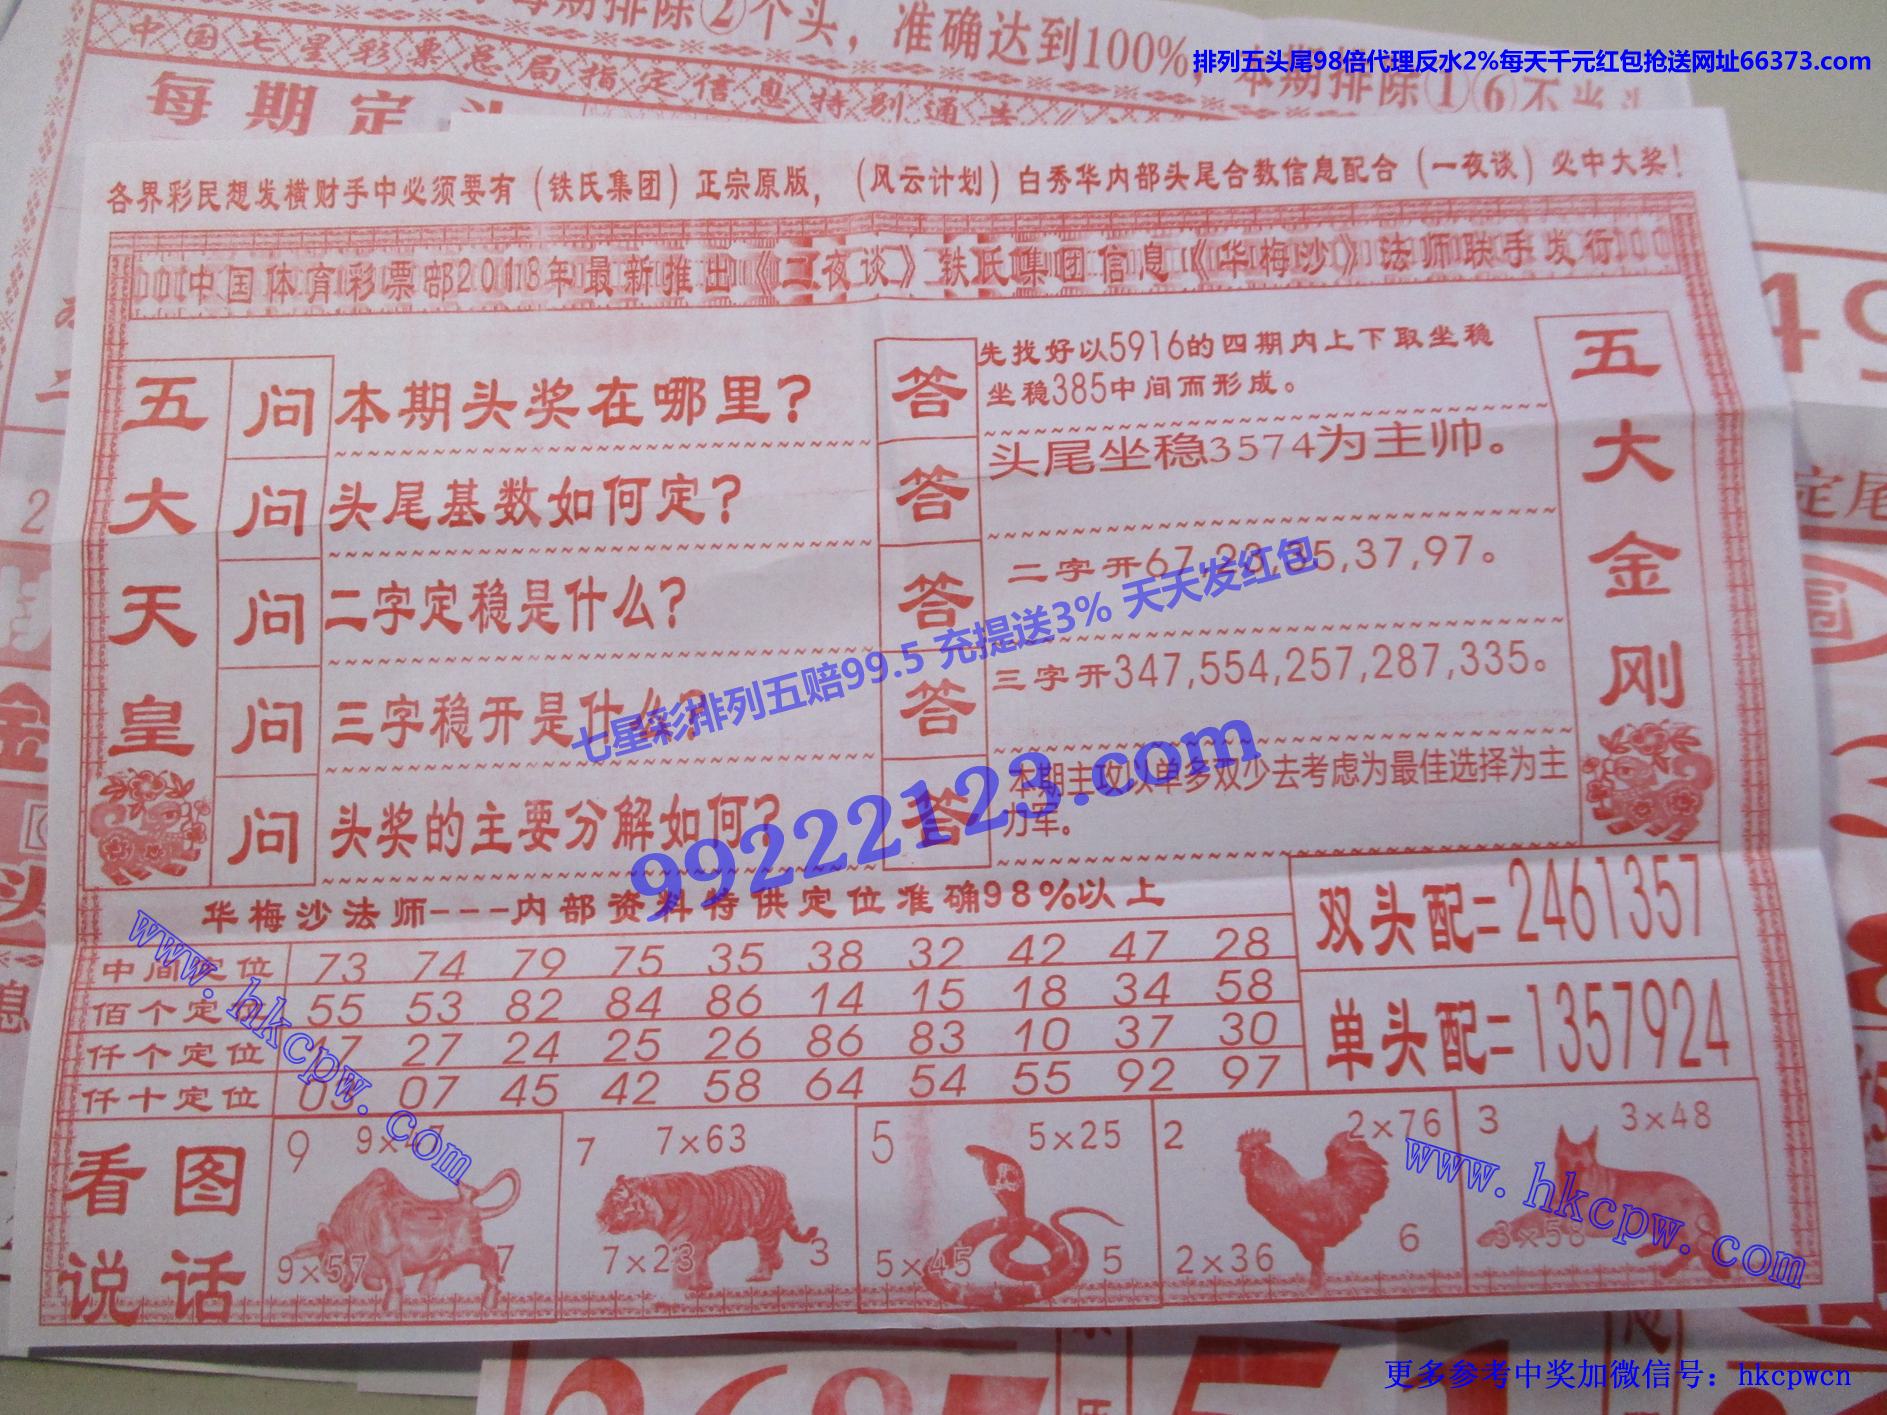 每期排除②个头，准确达到100%，本期排除①⑥不当头
排列五头尾98倍代理反水2%每天千元红包抢送网址66373.com
中国七星彩票总局指定信息特别通告
每期定头
各界彩民想发横财手中必须要有（铁氏集团）正宗原版，（风云计划）白秀华内部头尾合数信息配合（一夜谈）必中大奖！
中国体育彩票部2018年最新推出《一夜谈》铁氏集团信息《华梅沙》法师联手发行
五大天皇
问 本期头奖在哪里？
答 先找好以5916的四期内上下取坐稳
坐稳385中间而形成。
问 头尾基数如何定？
答 头尾坐稳3574为主帅。
问 二字定稳是什么？
答 二字开67,23,35,37,97。
问 三字稳开是什么？
答 三字开347,554,257,287,335。
问 头奖的主要分解如何？
答 本期主攻以单多双少去考虑为最佳选择为主
力军。
五大金刚
七星彩排列五赔99.5 充提送3% 天天发红包
99222123.com
华梅沙法师---内部资料特供定位准确98%以上
中间定位 73 74 79 75 35 38 32 42 47 28
佰个定位 55 53 82 84 86 14 15 18 34 58
仟个定位 17 27 24 25 26 86 83 10 37 30
仟十定位 03 07 45 42 58 64 54 55 92 97
双头配=2461357
单头配=1357924
www.hkcpw.com
看图
说话
9 9×47
9×57 7
7 7×63
7×23 3
5 5×25
5×45 5
2 2×76
2×36 6
3 3×48
3×58
www.hkcpw.com
定尾
更多参考中奖加微信号：hkcpwcn